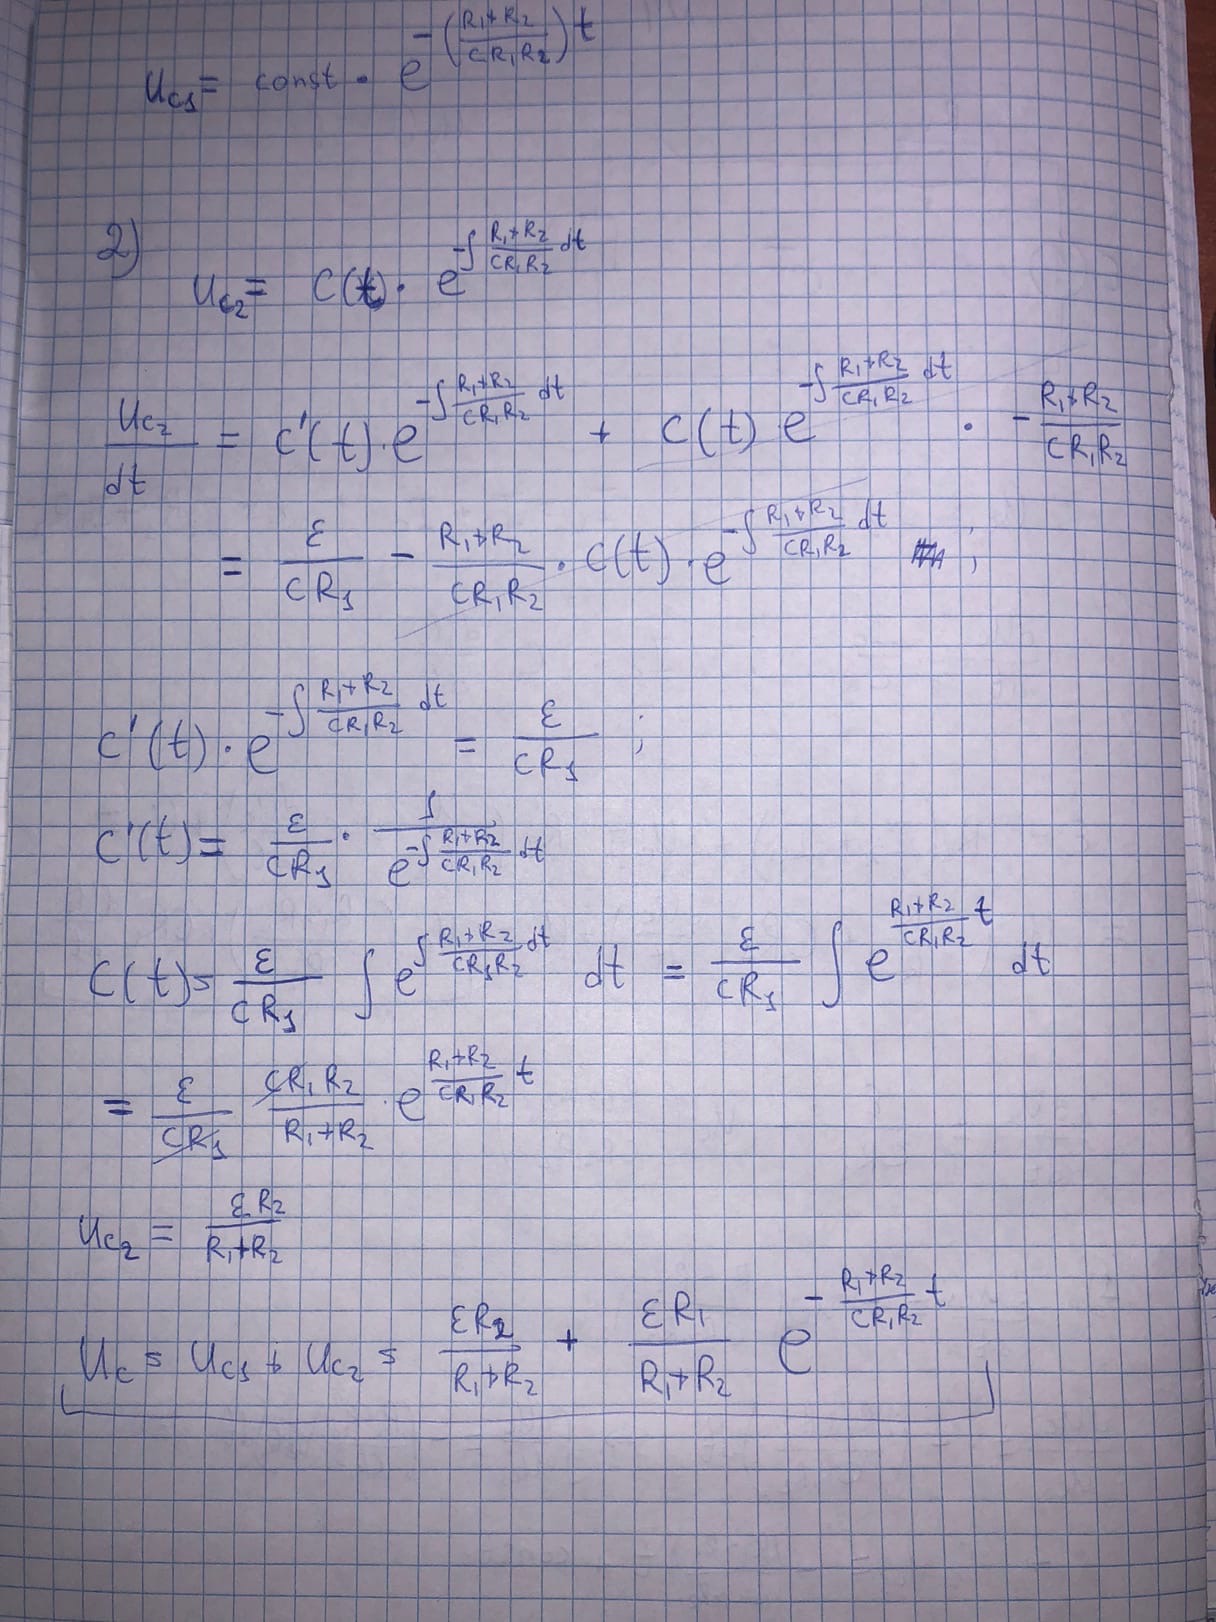 U_{C1} = const · e^{-(\frac{R_1+R_2}{CR_1R_2})t}
2)
U_{C2} = C(t) · e^{-∫\frac{R_1+R_2}{CR_1R_2}dt}
\frac{U_{C2}}{dt} = C'(t) · e^{-∫\frac{R_1+R_2}{CR_1R_2}dt} + C(t) e^{-∫\frac{R_1+R_2}{CR_1R_2}dt} · -\frac{R_1+R_2}{CR_1R_2}
= \frac{ε}{CR_1} - \frac{R_1+R_2}{CR_1R_2} · C(t) · e^{-∫\frac{R_1+R_2}{CR_1R_2}dt} ;
C'(t) · e^{-∫\frac{R_1+R_2}{CR_1R_2}dt} = \frac{ε}{CR_1} ;
C'(t) = \frac{ε}{CR_1} · \frac{1}{e^{-∫\frac{R_1+R_2}{CR_1R_2}dt}}
C(t) = \frac{ε}{CR_1} ∫ e^{∫\frac{R_1+R_2}{CR_1R_2}dt} dt = \frac{ε}{CR_1} ∫ e^{\frac{R_1+R_2}{CR_1R_2}t} dt
= \frac{ε}{CR_1} \frac{CR_1R_2}{R_1+R_2} · e^{\frac{R_1+R_2}{CR_1R_2}t}
U_{C2} = \frac{εR_2}{R_1+R_2}
U_C = U_{C1} + U_{C2} = \frac{εR_2}{R_1+R_2} + \frac{εR_1}{R_1+R_2} e^{-\frac{R_1+R_2}{CR_1R_2}t}